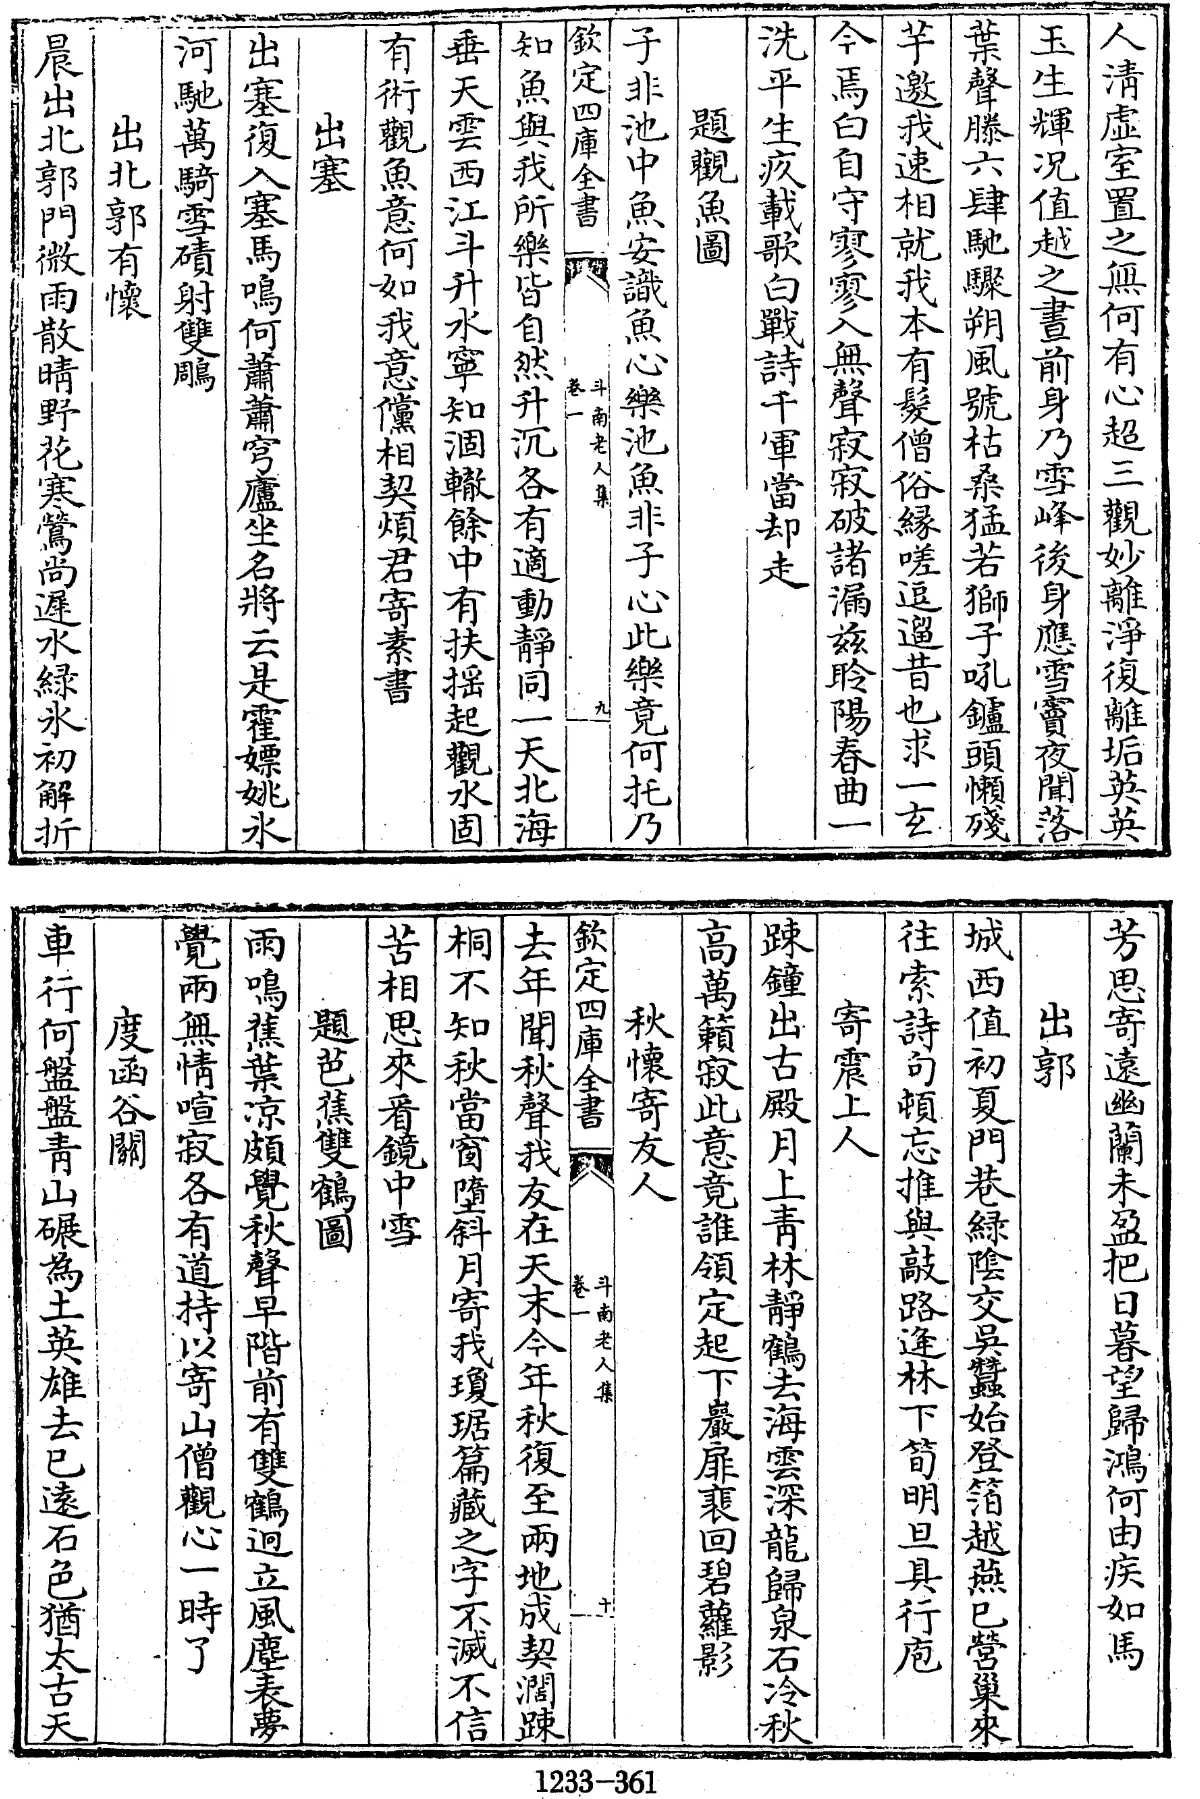 人清虛室置之無何有心超三觀妙離淨復離垢英英
玉生輝况值越之晝前身乃雪峰後身應雪竇夜聞落
葉聲滕六肆馳驟朔風號枯桑猛若獅子吼鑪頭懶殘
芋邀我速相就我本有髮僧俗緣嗟逗遛昔也求一玄
今焉白自守寥寥入無聲寂寂破諸漏兹聆陽春曲一
洗平生疚載歌白戰詩千軍當却走
題觀魚圖
子非池中魚安識魚心樂池魚非子心此樂竟何托乃
欽定四庫全書
斗南老人集
卷一
九
知魚與我所樂皆自然升沉各有適動靜同一天北海
垂天雲西江斗升水寧知涸轍餘中有扶摇起觀水固
有術觀魚意何如我意儻相契煩君寄素書
出塞
出塞復入塞馬鳴何蕭蕭穹廬坐名將云是霍嫖姚氷
河馳萬騎雪磧射雙鵰
出北郭有懷
晨出北郭門微雨散晴野花寒鶯尚遲水綠氷初解折
芳思寄遠幽蘭未盈把日暮望歸鴻何由疾如馬
出郭
城西值初夏門巷綠陰交吳蠶始登箔越燕已營巢來
往索詩句頓忘推與敲路逢林下筍明旦具行庖
寄震上人
踈鐘出古殿月上青林靜鶴去海雲深龍歸泉石冷秋
高萬籟寂此意竟誰領定起下巖扉裵回碧蘿影
秋懷寄友人
欽定四庫全書
斗南老人集
卷一
十
去年聞秋聲我友在天末今年秋復至兩地成契濶踈
桐不知秋當窗墮斜月寄我瓊琚篇藏之字不滅不信
苦相思來看鏡中雪
題芭蕉雙鶴圖
雨鳴蕉葉凉頗覺秋聲早階前有雙鶴迥立風塵表夢
覺兩無情喧寂各有道持以寄山僧觀心一時了
度函谷關
車行何盤盤青山碾為土英雄去已遠石色猶太古天
1233-361